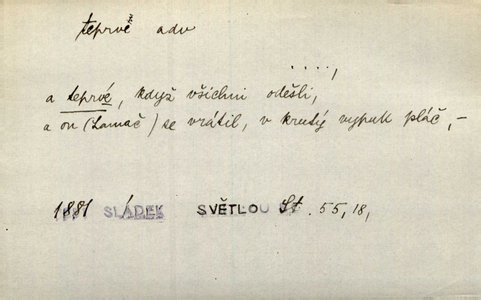 teprvé adv
....,
a teprvé, když všichni odešli,
a on (Lamač) se vrátil, v krutý vypuk pláč,-
1881 SLÁDEK SVĚTLOU St. 55,18,